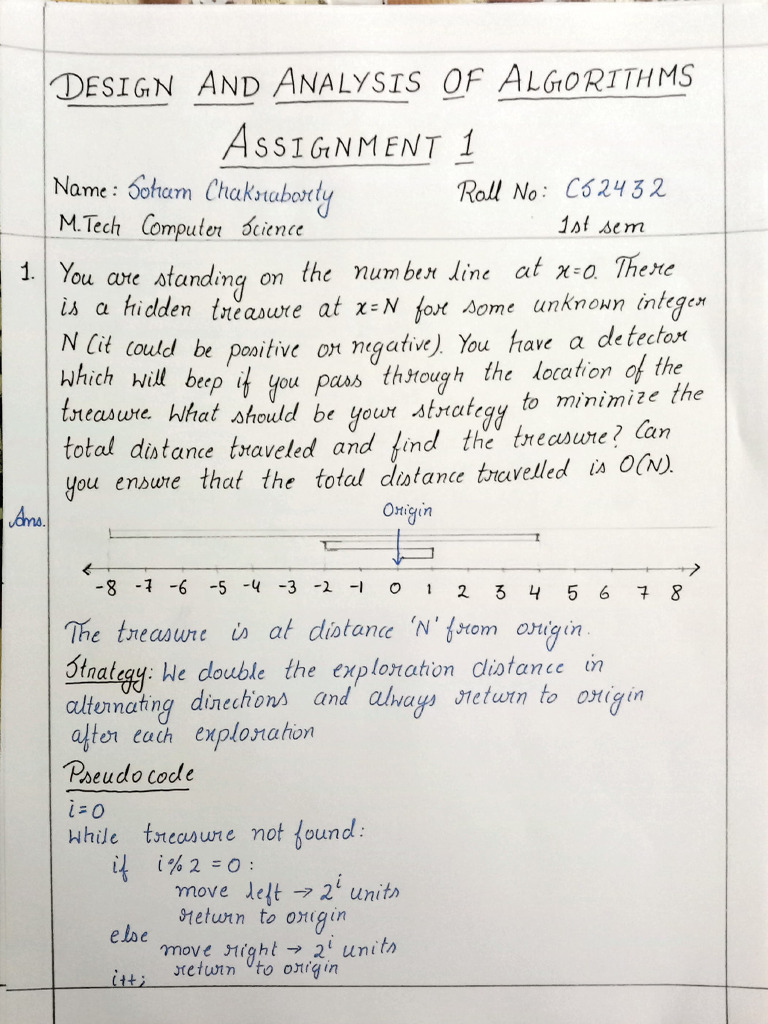 DESIGN AND ANALYSIS OF ALGORITHMS
ASSIGNMENT 1
Name: Soham Chakraborty Roll No: CS2432
M.Tech Computer Science 1st sem
1. You are standing on the number line at x=0. There
is a hidden treasure at x=N for some unknown integer
N (it could be positive or negative). You have a detector
which will beep if you pass through the location of the
treasure. What should be your strategy to minimize the
total distance traveled and find the treasure? Can
you ensure that the total distance travelled is O(N).
Ans. Origin
-8 -7 -6 -5 -4 -3 -2 -1 0 1 2 3 4 5 6 7 8
The treasure is at distance 'N' from origin.
Strategy: We double the exploration distance in
alternating directions and always return to origin
after each exploration
Pseudocode
i=0
While treasure not found:
if i%2 = 0:
move left → 2^i units
return to origin
else
move right → 2^i units
return to origin
i++;